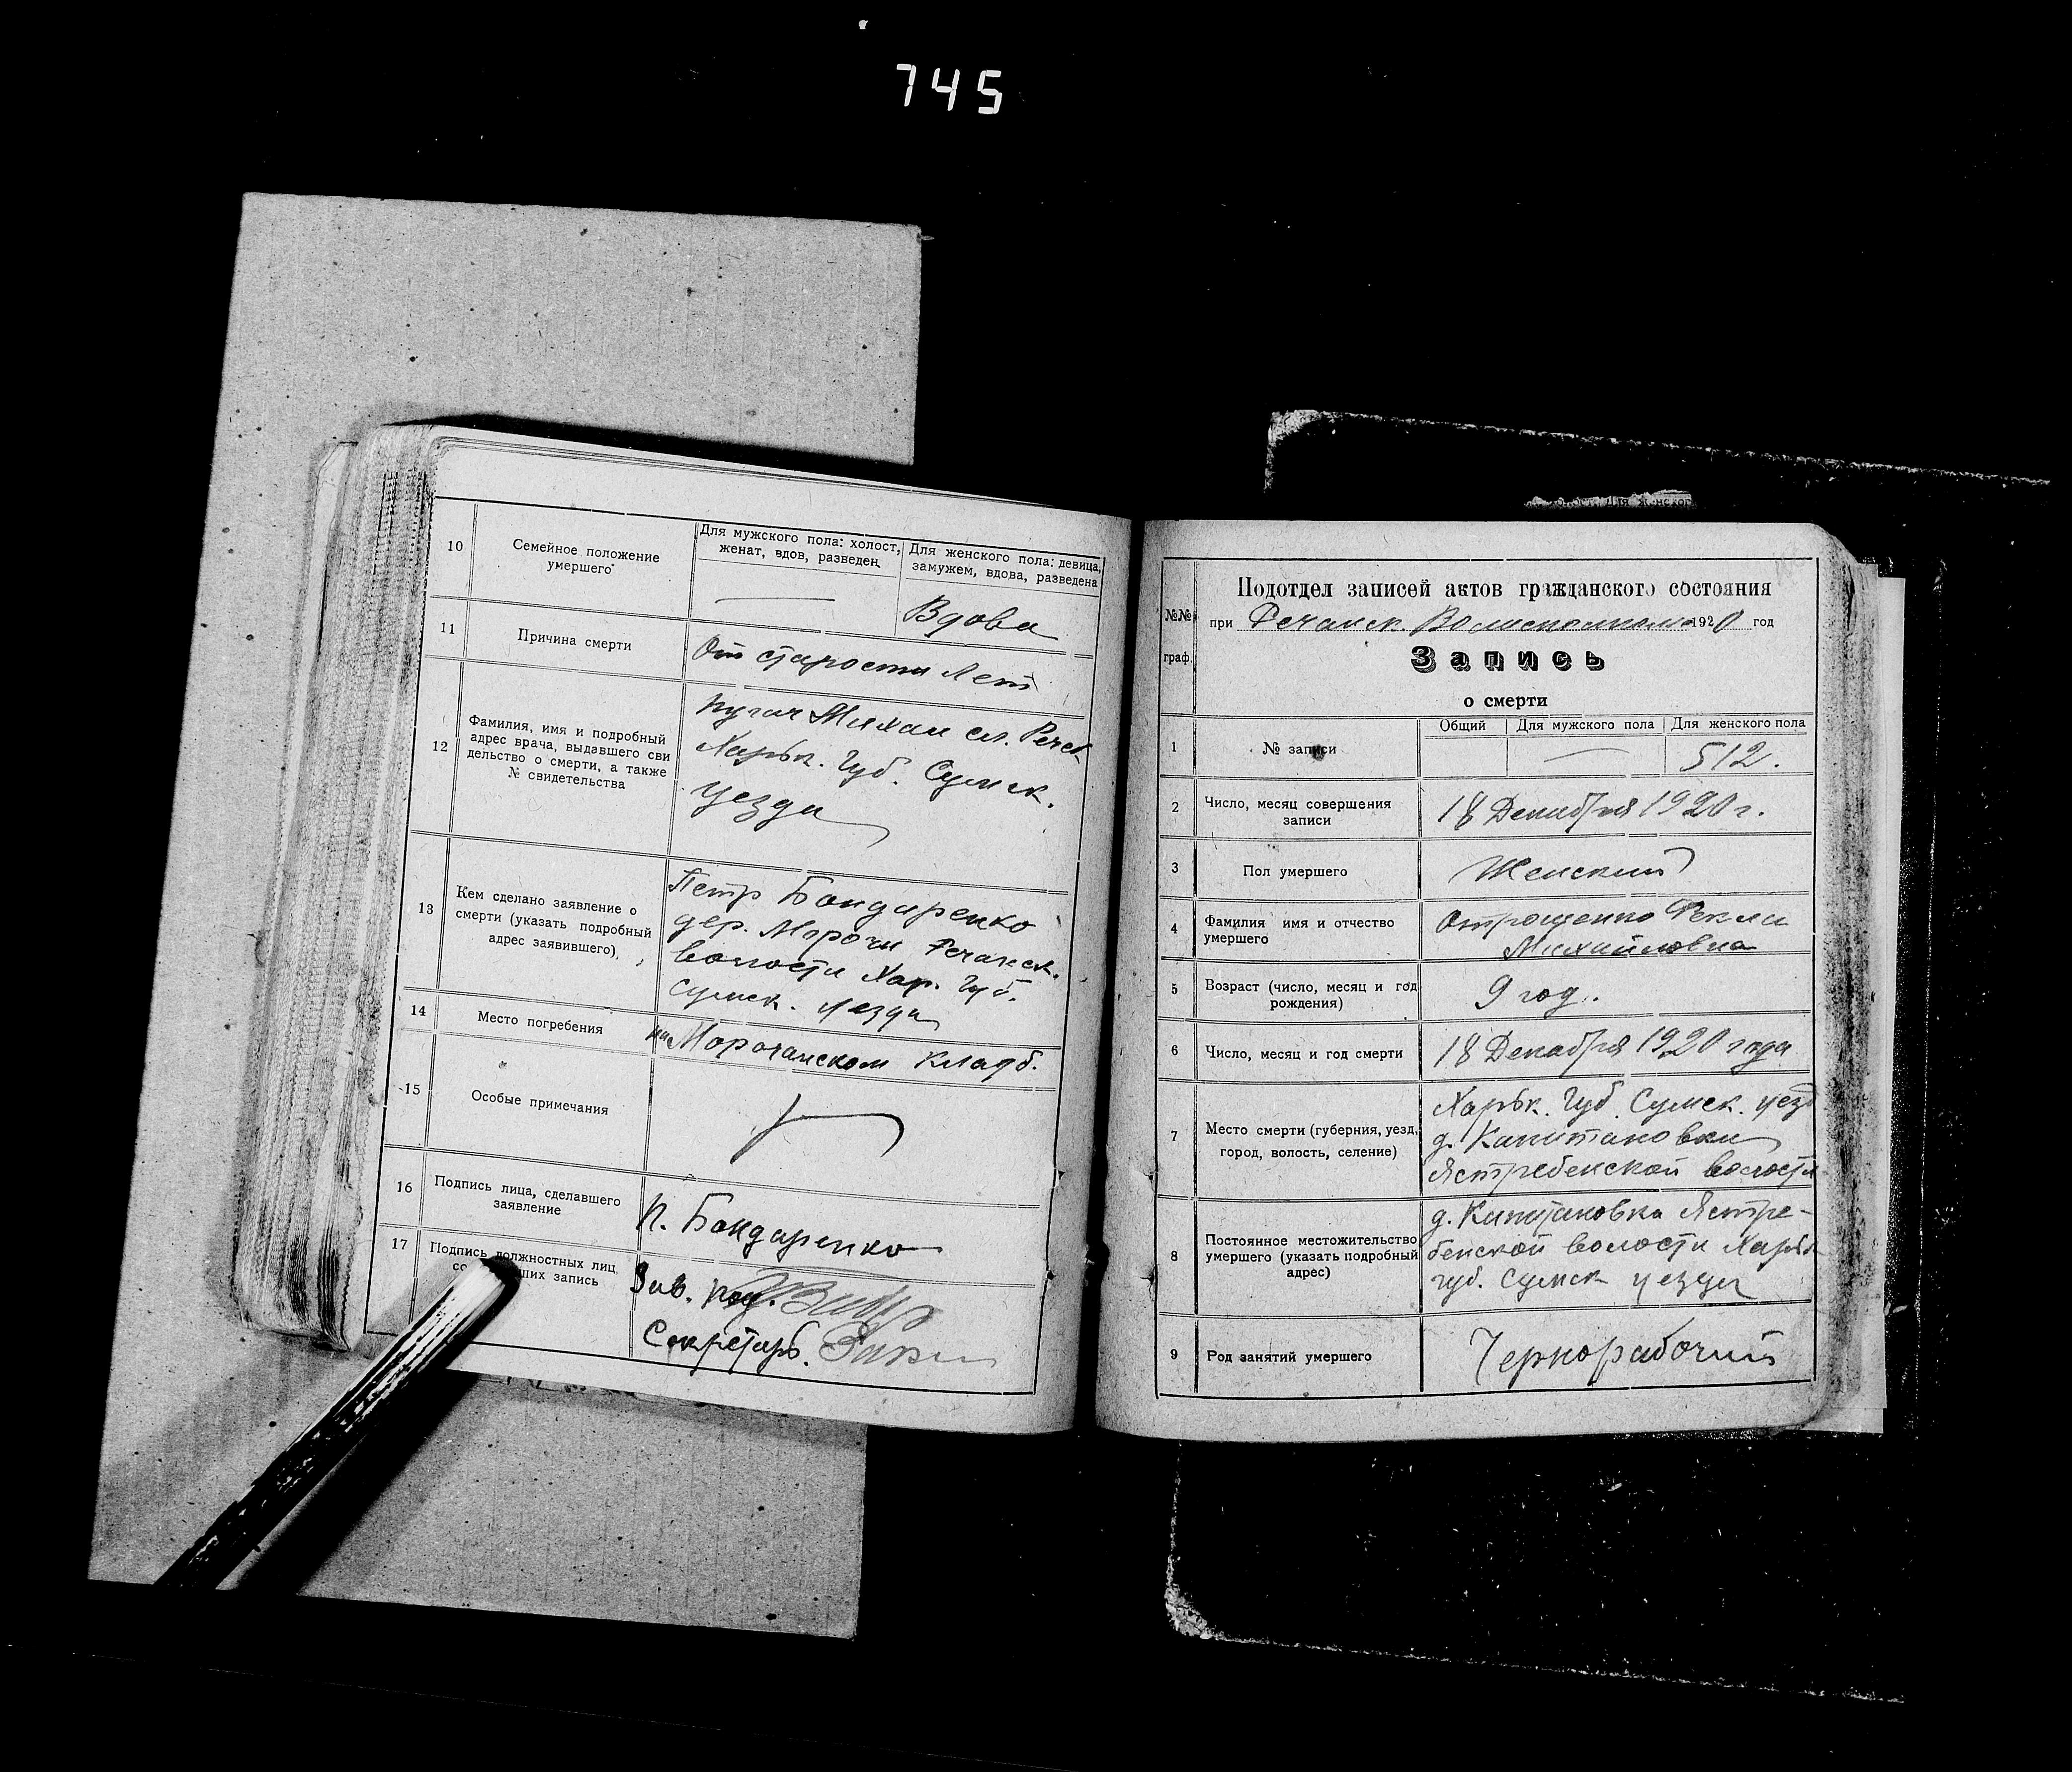 745
10
Семейное положение
умершего
Для мужского пола: холост,
женат, вдов, разведен
Для женского пола: девица,
замужем, вдова, разведена
Вдова
11
Причина смерти
От старости лет
12
Фамилия, имя и подробный
адрес врача, выдавшего сви
дельство о смерти, а также
№ свидетельства
Пугач Михаи сл. Речк
Харьк. Губ. Сумск.
уезда
13
Кем сделано заявление о
смерти (указать подробный
адрес заявившего)
Петр Бондаренко
дер. Морочи Речанск.
волости Хар. Губ.
Сумск. уезда
14
Место погребения
на Морочанском кладб.
15
Особые примечания
16
Подпись лица, сделавшего
заявление
П. Бондаренко
17
Подпись должностных лиц
запись
Зав. под.
Секретарь
№№
граф.
Подотдел записей актов гражданского состояния
при Речанск. Волисполкоме 1920 год
Запись
о смерти
1
№ записи
Общий
Для мужского пола
Для женского пола
512.
2
Число, месяц совершения
записи
18 Декабря 1920 г.
3
Пол умершего
Женский
4
Фамилия имя и отчество
умершего
Отрощенко Фекла
Михайловна
5
Возраст (число, месяц и год
рождения)
9 год.
6
Число, месяц и год смерти
18 Декабря 1920 года
7
Место смерти (губерния, уезд,
город, волость, селение)
Харьк. Губ. Сумск. уезд
д. Капитановки
Ястребенской волости
8
Постоянное местожительство
умершего (указать подробный
адрес)
д. Капитановка Ястре-
бенской волости Харьк
губ. Сумск уезда
9
Род занятий умершего
Чернорабочий